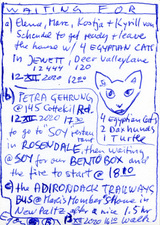 a) Elena, Marc, Kostja + Kyrill von
Schenke to get ready + leave
the house w/ 4 EGYPTIAN CATS
in JEWETT, Deer Valley lane
12444 120
12 XII 2020 12
b) PETRA GEHRUNG
@ 145 Cottekill Rd.
12 XII 2020 17
to go to SOY
in ROSENDALE, then waiting
@ SOY for our BENTO BOX and
the fire to start @ 18 00
4 Egyptian Cats
2 Dax hunds
1 turtle
c) the ADIRONDACK TRAILWAYS
BUS @ Main
New Paltz after a nice 1.5 hr
2020 walk